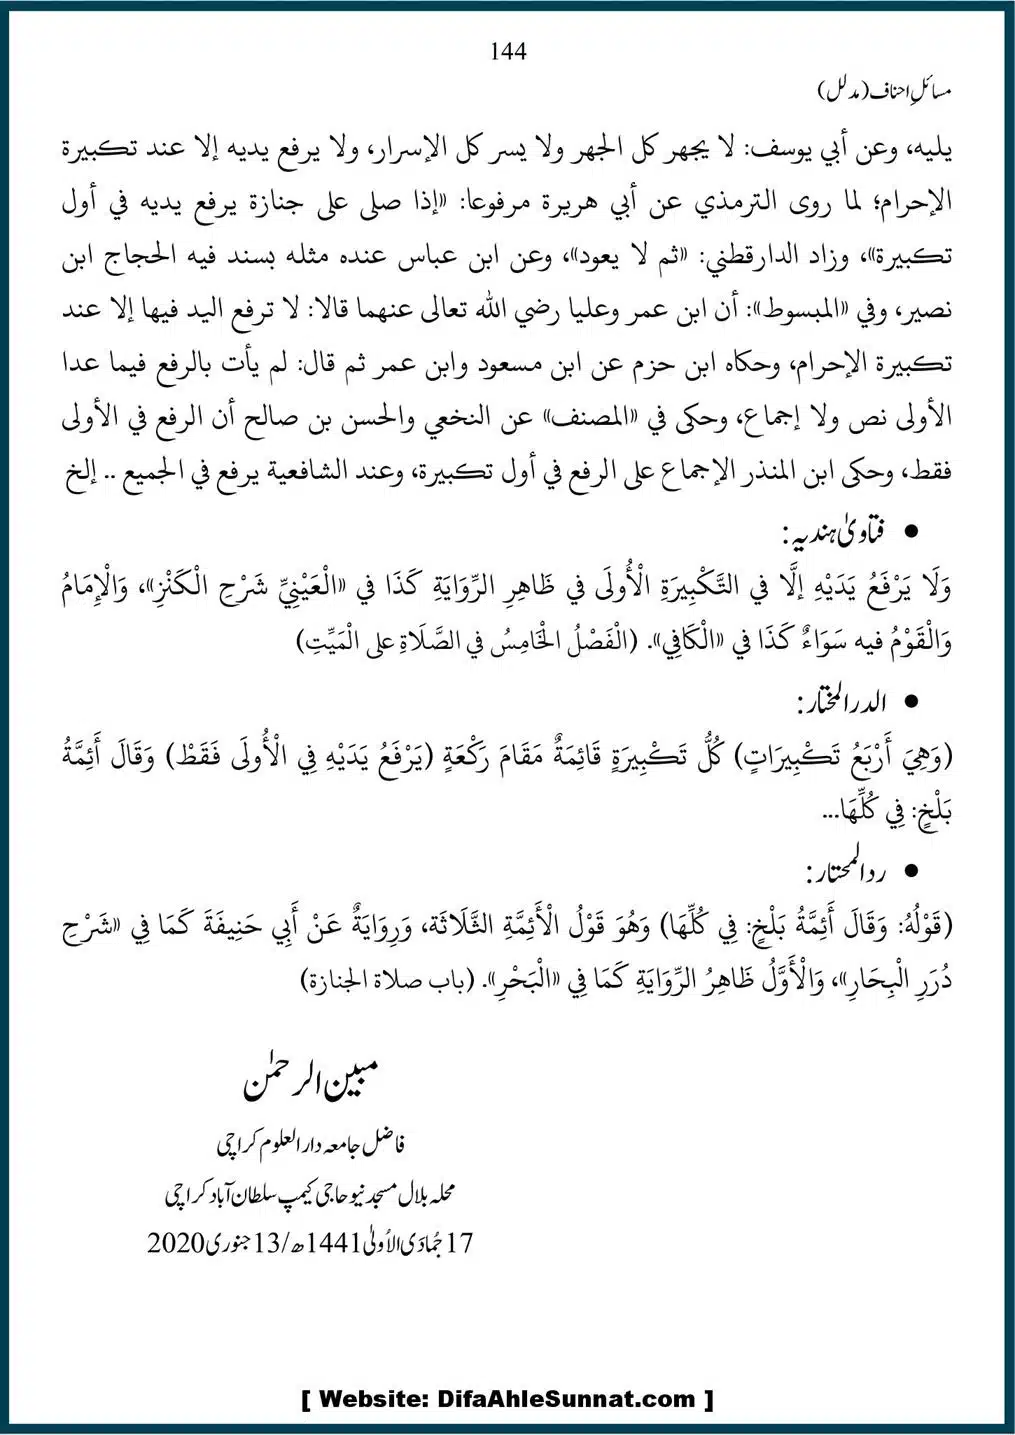 144
مسائلِ احناف (مدلل)
يليه، وعن أبي يوسف: لا يجهر كل الجهر ولا يسر كل الإسرار، ولا يرفع يديه إلا عند تكبيرة
الإحرام؛ لما روى الترمذي عن أبي هريرة مرفوعا: «إذا صلى على جنازة يرفع يديه في أول
تكبيرة»، وزاد الدارقطني: «ثم لا يعود»، وعن ابن عباس عنده مثله بسند فيه الحجاج ابن
نصير، وفي «المبسوط»: أن ابن عمر وعليا رضي الله تعالى عنهما قالا: لا ترفع اليد فيها إلا عند
تكبيرة الإحرام، وحكاه ابن حزم عن ابن مسعود وابن عمر ثم قال: لم يأت بالرفع فيما عدا
الأولى نص ولا إجماع، وحكى في «المصنف» عن النخعي والحسن بن صالح أن الرفع في الأولى
فقط، وحكى ابن المنذر الإجماع على الرفع في أول تكبيرة، وعند الشافعية يرفع في الجميع .. إلخ
• فتاویٰ ہندیہ:
وَلَا يَرْفَعُ يَدَيْهِ إلَّا في التَّكْبِيرَةِ الْأُولَى في ظَاهِرِ الرِّوَايَةِ كَذَا في «الْعَيْنِيِّ شَرْحِ الْكَنْزِ»، وَالْإِمَامُ
وَالْقَوْمُ فيه سَوَاءٌ كَذَا في «الْكَافِي». (الْفَصْلُ الْخَامِسُ في الصَّلَاةِ على الْمَيِّتِ)
• الدر المختار:
(وَهِيَ أَرْبَعُ تَكْبِيرَاتٍ) كُلُّ تَكْبِيرَةٍ قَائِمَةٌ مَقَامَ رَكْعَةٍ (يَرْفَعُ يَدَيْهِ فِي الْأُولَى فَقَطْ) وَقَالَ أَئِمَّةُ
بَلْخٍ: فِي كُلِّهَا...
• رد المحتار:
(قَوْلُهُ: وَقَالَ أَئِمَّةُ بَلْخٍ: فِي كُلِّهَا) وَهُوَ قَوْلُ الْأَئِمَّةِ الثَّلَاثَة، وَرِوَايَةٌ عَنْ أَبِي حَنِيفَةَ كَمَا فِي «شَرْحِ
دُرَرِ الْبِحَارِ»، وَالْأَوَّلُ ظَاهِرُ الرِّوَايَةِ كَمَا فِي «الْبَحْرِ». (باب صلاة الجنازة)
مبین الرحمٰن
فاضل جامعہ دار العلوم کراچی
محلہ بلال مسجد نیو حاجی کیمپ سلطان آباد کراچی
17 جُمادَی الاُولیٰ 1441ھ/13 جنوری 2020
[ Website: DifaAhleSunnat.com ]